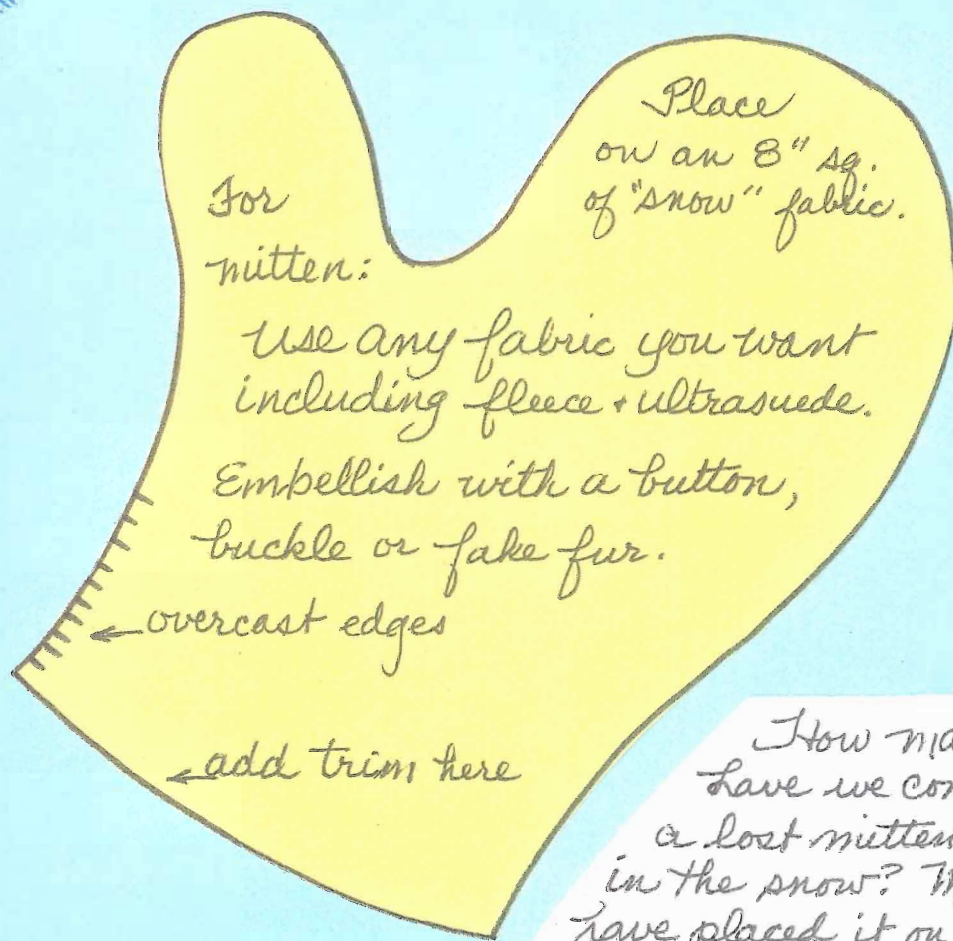 Place
on an 8" sq.
of "snow" fabric.
For
mitten:
Use any fabric you want
including fleece + ultrasuede.
Embellish with a button,
buckle or fake fur.
overcast edges
add trim here
How
have we
a lost mitten
in the snow?
have placed it on